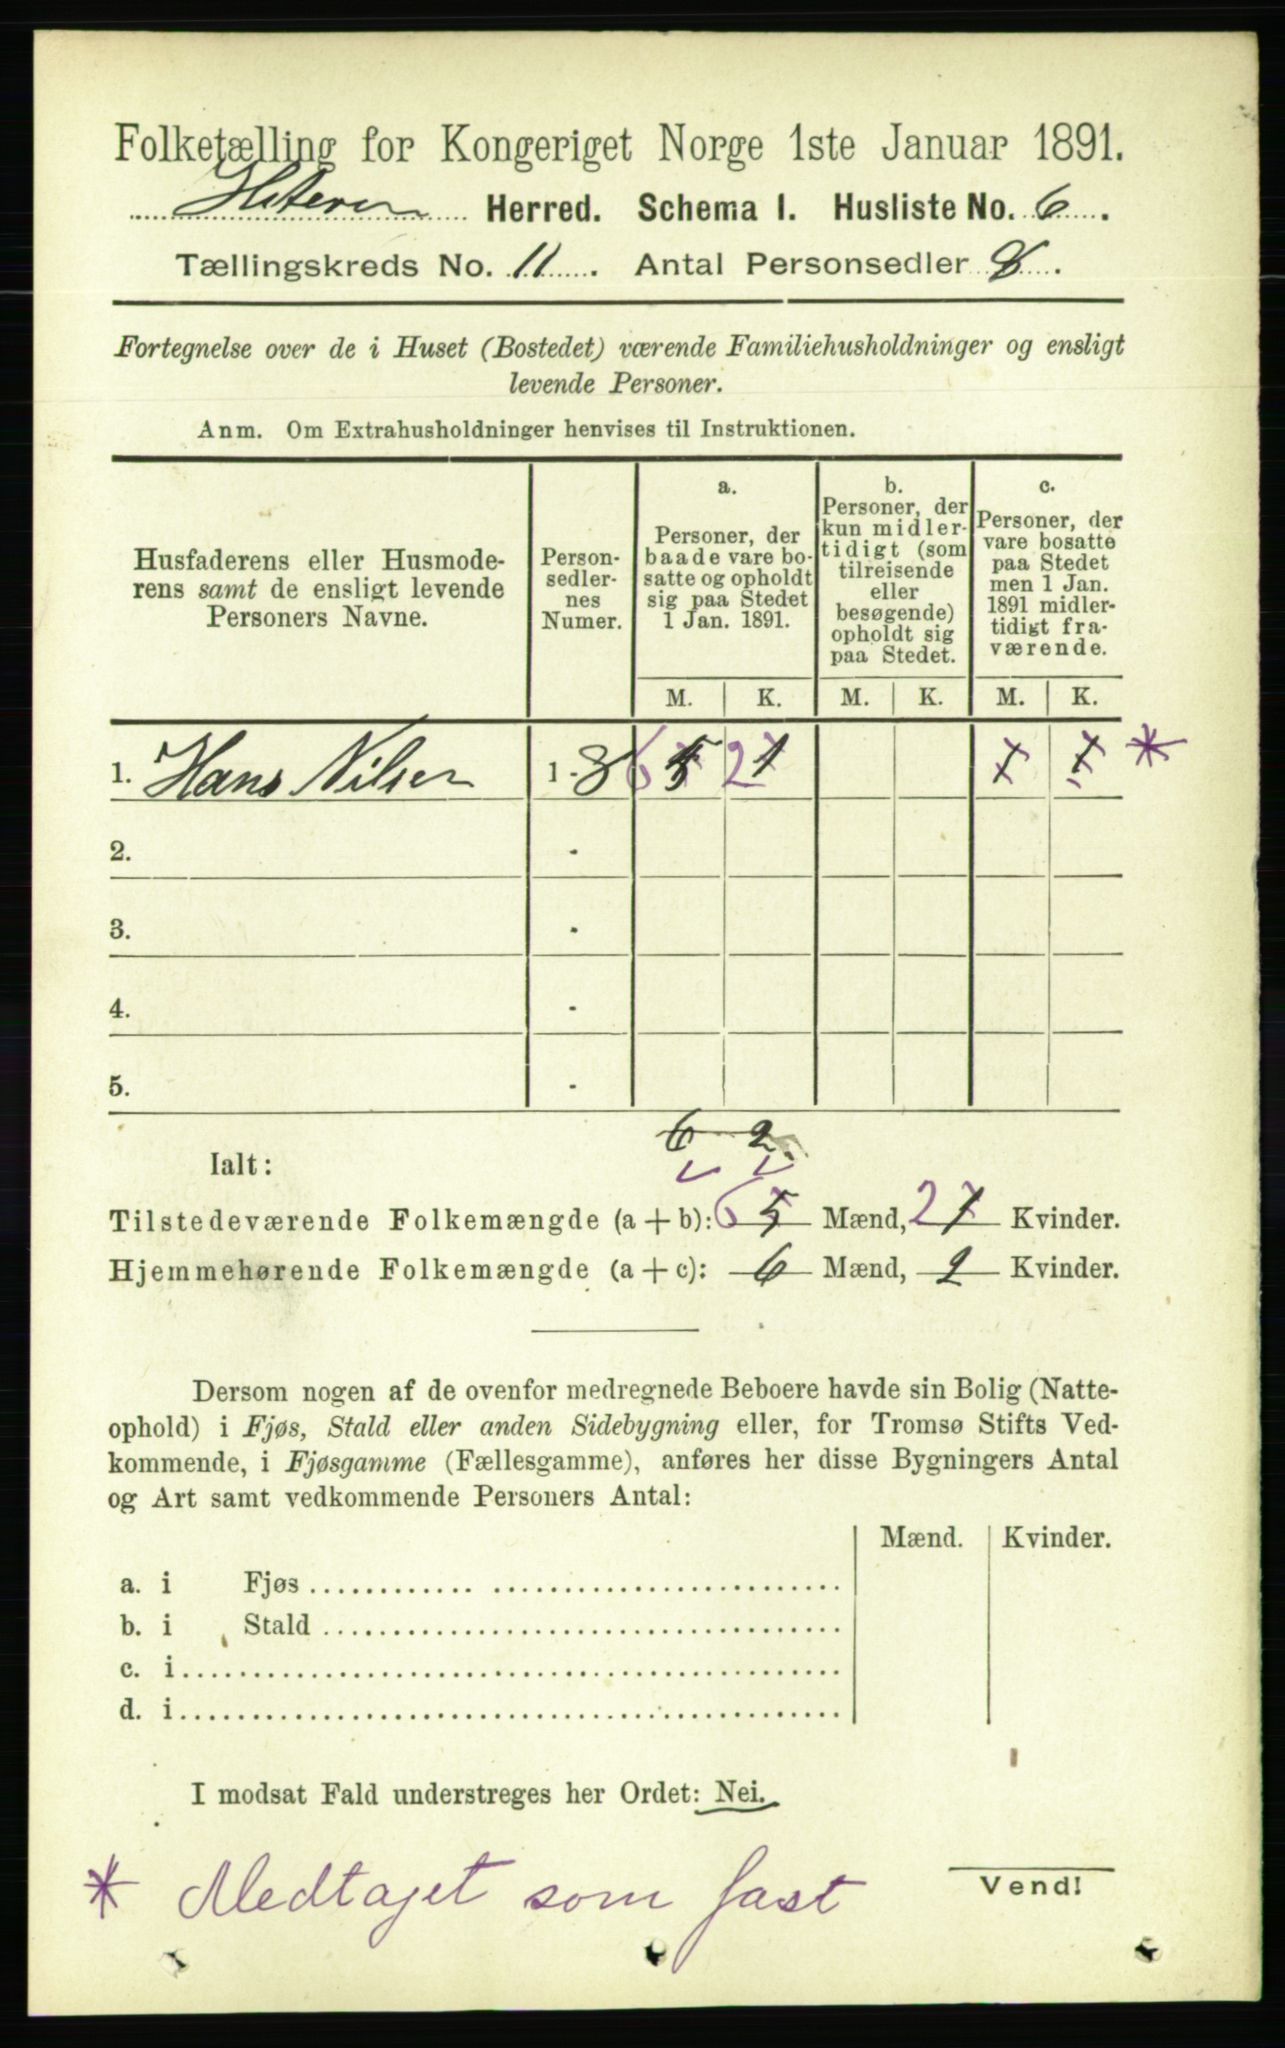 Folketælling for Kongeriget Norge 1ste Januar 1891.
Hiteren Herred. Schema I. Husliste No. 6.
Tællingskreds No. 11. Antal Personsedler 8.
Fortegnelse over de i Huset (Bostedet) værende Familiehusholdninger og ensligt
levende Personer.
Anm. Om Extrahusholdninger henvises til Instruktionen.
Husfaderens eller Husmode-
rens samt de ensligt levende
Personers Navne.
Person-
sedler-
nes
Numer.
a.
Personer, der
baade vare bo-
satte og opholdt
sig paa Stedet
1 Jan. 1891.
b.
Personer, der
kun midler-
tidigt (som
tilreisende
eller
besøgende)
opholdt sig
paa Stedet.
c.
Personer, der
vare bosatte
paa Stedet
men 1 Jan.
1891 midler-
tidigt fra-
værende.
M. K. M. K. M. K.
1. Hans Nilsen 1 - 8 6 5 2 1 1 1 *
2. -
3. -
4. -
5. -
6 - 2
Ialt:
Tilstedeværende Folkemængde (a + b): 6 5 Mænd, 2 1 Kvinder.
Hjemmehørende Folkemængde (a + c): 6 Mænd, 2 Kvinder.
Dersom nogen af de ovenfor medregnede Beboere havde sin Bolig (Natte-
ophold) i Fjøs, Stald eller anden Sidebygning eller, for Tromsø Stifts Ved-
kommende, i Fjøsgamme (Fællesgamme), anføres her disse Bygningers Antal
og Art samt vedkommende Personers Antal:
Mænd. Kvinder.
a. i Fjøs
b. i Stald
c. i
d. i
I modsat Fald understreges her Ordet: Nei.
* Medtaget som fast
Vend!